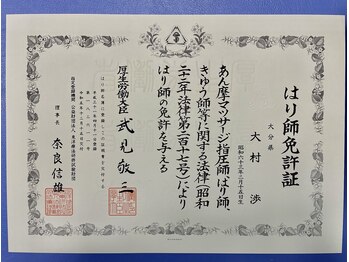 はり師免許証
大分県
大村 渉
昭和六十三年三月十五日生
あん摩マツサージ指圧師、はり師、
きゆう師等に関する法律（昭和
二十二年法律第二百十七号）により
はり師の免許を与える
厚生労働大臣 武見敬三
はり師名簿に登録したので証明書を交付する
理事長 奈良信雄